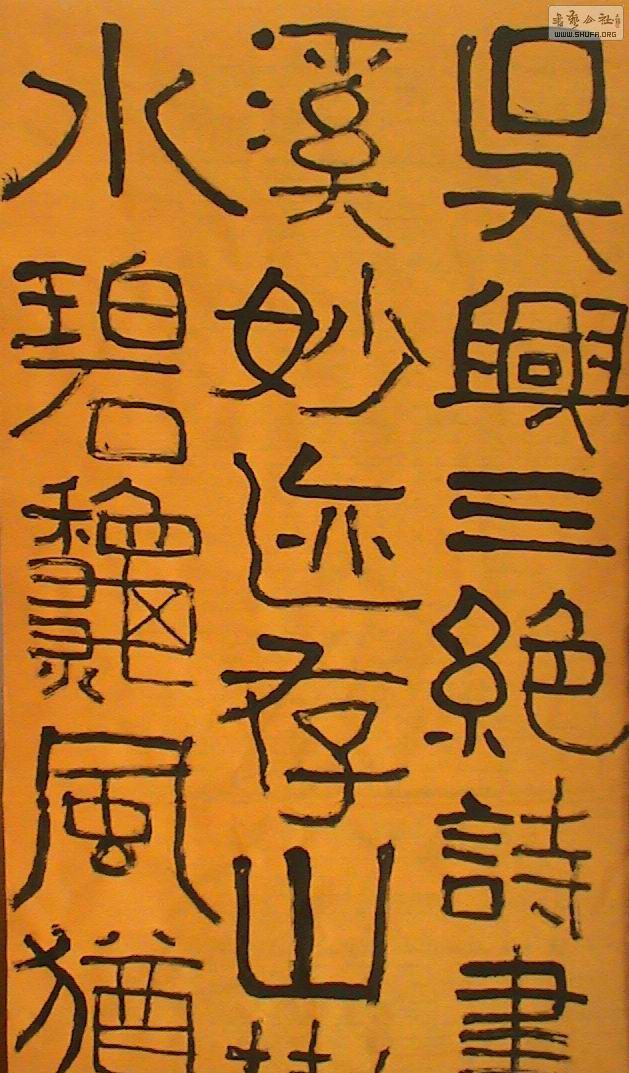 吳興三絕詩書
溪妙迹存山
水碧龝風猶
書藝公社
WWW.SHUFA.ORG